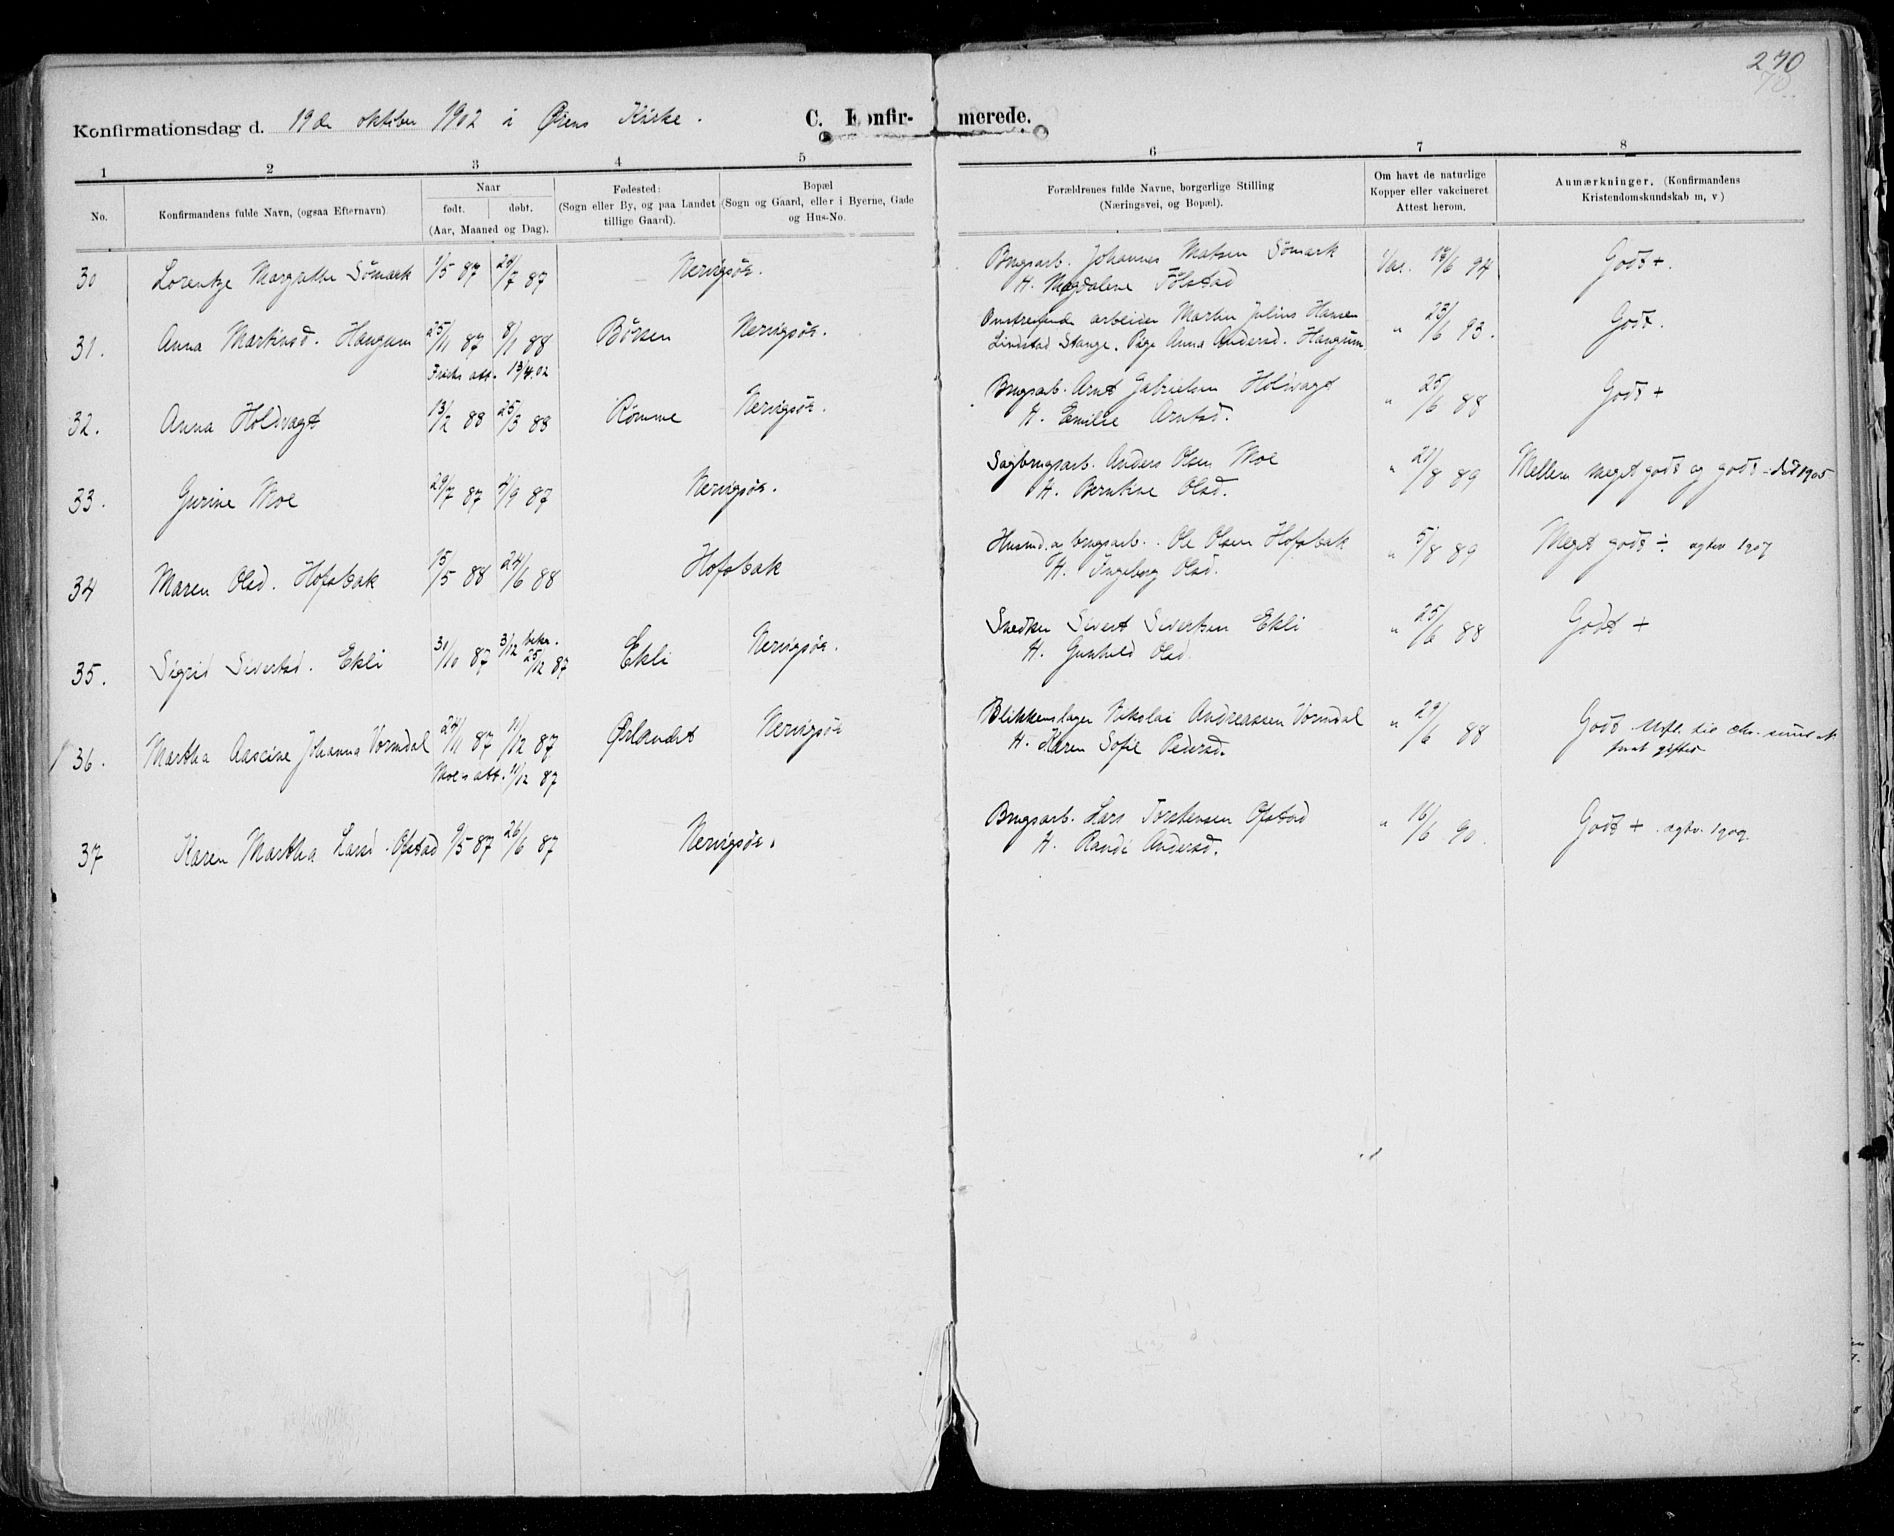 270
Konfirmationsdag d. 19de oktober 1902 i Ørens Kirke.
C. Konfirmerede.
1 2 3 4 5 6 7 8
No.
Konfirmandens fulde Navn, (ogsaa Efternavn)
Naar
født. døbt.
(Aar, Maaned og Dag).
Fødested:
(Sogn eller By, og paa Landet
tillige Gaard).
Bopæl
(Sogn og Gaard, eller i Byerne, Gade
og Hus-No.
Forældrenes fulde Navne, borgerlige Stilling
(Næringsvei, og Bopæl).
Om havt de naturlige
Kopper eller vakcineret
Attest herom.
Anmærkninger, (Konfirmandens
Kristendomskundskab m, v)
30 Lorentze Margrethe Sömark 1/5 87 24/7 87 Nervigsør. Brugsarb. Johannes Matsen Sömark Vac. 14/6 94 Godt +.
H. Magdalene Tolstad
31. Anna Martinsd. Haugum 25/11 87 8/1 88 Børsen Nervigsør. arbeider Martin Julius Hansen " 23/6 93. Godt.
Lindstad Stange. Pige Anna Andersd. Haugum
att. 13/4 02
32. Anna Holdvagt 13/2 88 25/3 88 Rømme Nervigsør. Brugsarb. Arnt Gabrielsen Holdvagt " 25/6 88 Godt +
H. Emilie Arntsd.
33. Gurine Moe 29/7 87 4/9 87 Nervigsør. Sagbrugsarb. Anders Olsen Moe " 21/8 89 Mellem meget godt og godt - död 1905
H. Berntine Olsd.
34 Maren Olsd. Hofsbak 15/5 88 24/6 88 Hofsbak Husmd. og brugsarb. Ole Olsen Hofsbak " 5/8 89 Meget godt ÷ agtv 1907
H. Ingeborg Olsd.
35. Sigrid Sivertsd. Ekli 30/10 87 3/12 bekr. 25/12 87 Ekli Nervigsør. Snedker Sivert Sivertsen Ekli " 25/6 88 Godt +
H. Gunhild Olsd.
36. Martha Aasine Johanna Vormdal 24/11 87 11/12 87 Ørlandet Nervigsør Blikkenslager Nikolai Andreassen Vormdal " 29/6 88 Godt Utfl. til
H. Karen Sofie Pedersd. giftet
Moe's att. 11/12 87
37 Karen Martha Larsd. Ofstad 9/5 87 26/6 87 Nervigsør. Brugsarb. Lars Torstensen Ofstad " 16/6 90. Godt + . agtv. 1909
H. Randi Andersd.